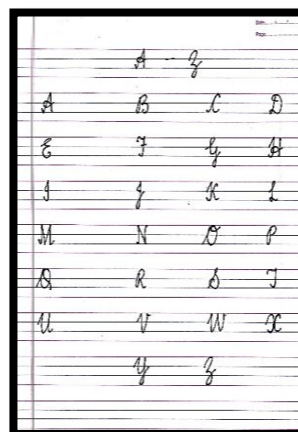 Date
Page
A - Z
A B C D
E F G H
I J K L
M N O P
Q R S T
U V W X
Y Z